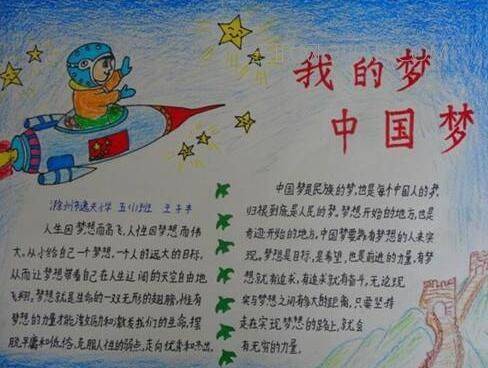 我的梦
中国梦
滁州市逸夫小学 五(1)班 王子丰
人生因梦想而高飞，人性因梦想而伟
大。从小给自己一个梦想，一个人的远大的目标，
从而让梦想带着自己在人生辽阔的天空自由地
飞翔，梦想就是生命的一双无形的翅膀，惟有
梦想的力量才能激励和激发我们的生命，摆
脱平庸和低俗，克服人性的弱点，走向优秀和杰出。
中国梦是民族的梦，也是每个中国人的梦，
归根到底是人民的梦。梦想开始的地方，也是
奇迹开始的地方，中国梦要靠有梦想的人来实
现。梦想是目标，是希望，也是前进的力量，有梦
想就有追求，有追求就有奋斗，无论现
实与梦想之间有多大的距离，只要坚持
走在实现梦想的路上，就会
有无穷的力量。